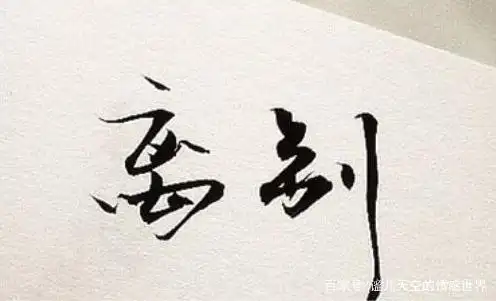 离别
百家号/谧儿天空的情感世界